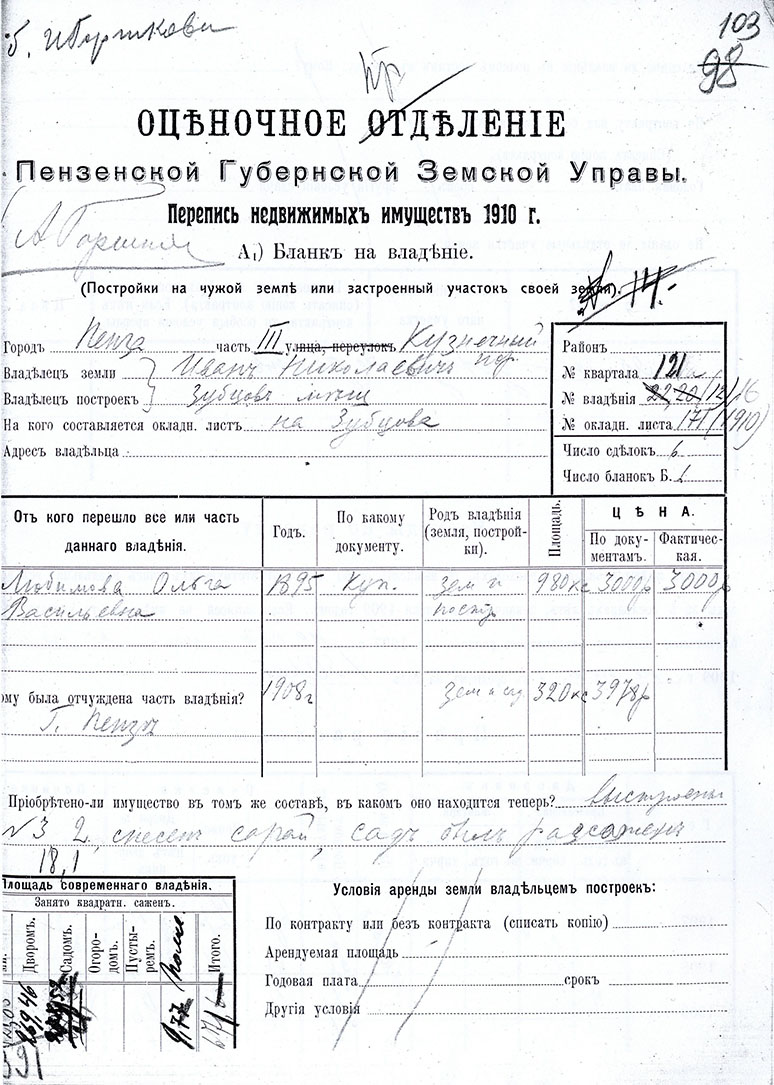 103
98
ОЦѢНОЧНОЕ ОТДѢЛЕНІЕ
Пензенской Губернской Земской Управы.
Перепись недвижимыхъ имуществъ 1910 г.
А₁) Бланкъ на владѣніе.
(Постройки на чужой землѣ или застроенный участокъ своей земли).
14.-
Городъ Пенза часть III улица, переулокъ Кузнечный
Владѣлецъ земли Иванъ Николаевичъ
Владѣлецъ построекъ Зубцовъ мѣщ
На кого составляется окладн. листъ на Зубцова
Адресъ владѣльца
Районъ
№ квартала 121
№ владѣнія 22, 20/12/16
№ окладн. листа 171 (1910)
Число сдѣлокъ
Число бланокъ Б. 1
Отъ кого перешло все или часть даннаго владѣнія.
Годъ.
По какому документу.
Родъ владѣнія (земля, постройки).
Площадь.
ЦѢНА.
По документамъ.
Фактическая.
Любимова Ольга 1895 Куп. зем и 980 кс 3000р 3000р
Васильевна постр
ому была отчуждена часть владѣнія? 1908г 320 кс 3978р
Г. Пенза
Пріобрѣтено-ли имущество въ томъ же составѣ, въ какомъ оно находится теперь? выстроены
№3 2, снесенъ сарай, садъ былъ разсаженъ
18,1
Площадь современнаго владѣнія.
Занято квадратн. сажен.
Дворомъ.
Садомъ.
Огородомъ.
Пустыремъ.
Итого.
Условія аренды земли владѣльцемъ построекъ:
По контракту или безъ контракта (списать копію)
Арендуемая площадь
Годовая плата срокъ
Другія условія